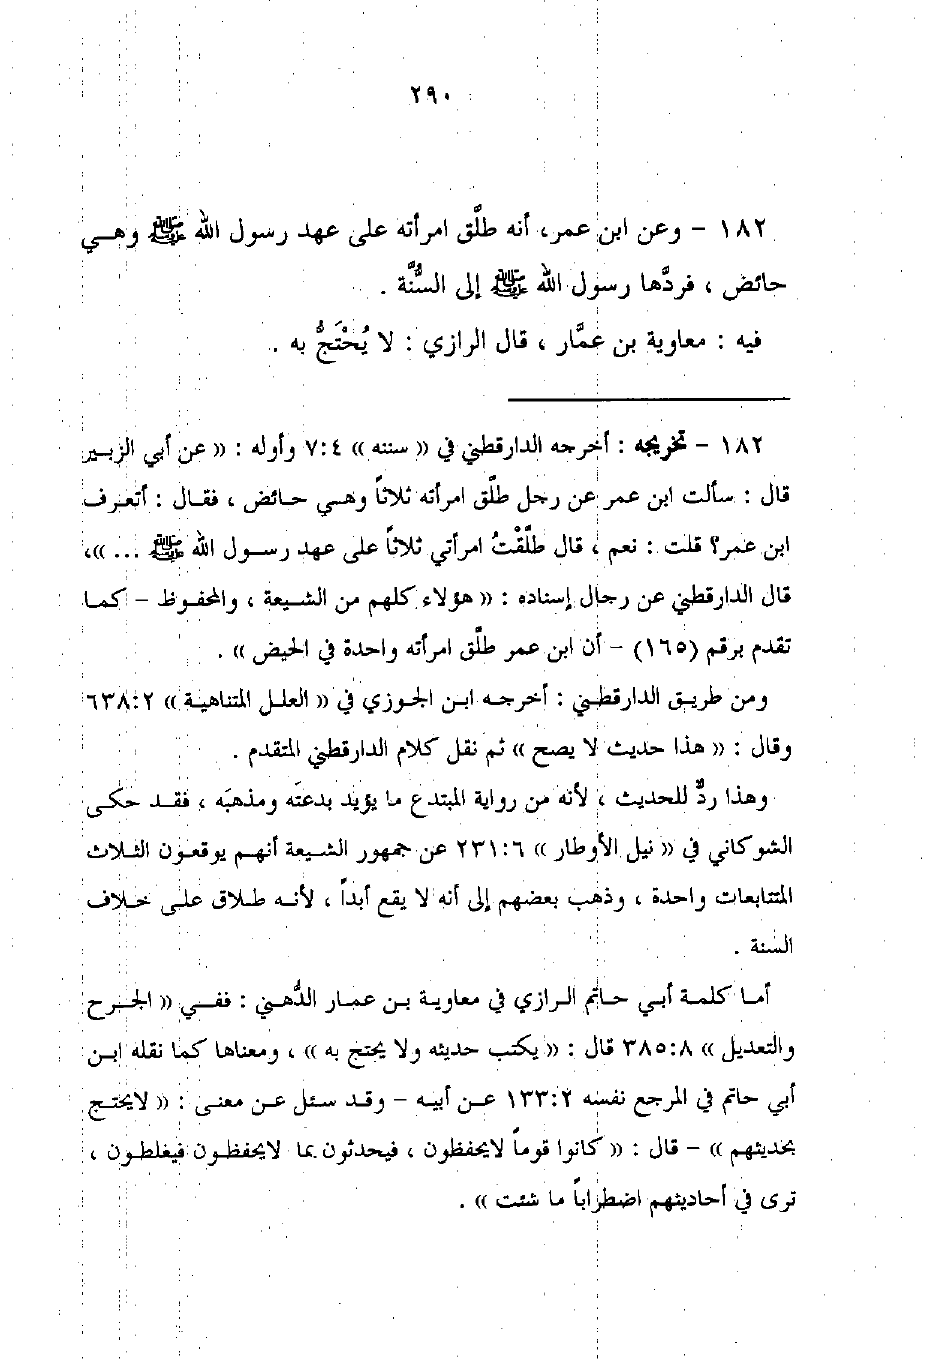 ٢٩٠
١٨٢ – وعن ابن عمر، أنه طلَّق امرأته على عهد رسول الله ﷺ وهـي
حائض ، فردَّها رسول الله ﷺ إلى السُّنَّة .
فيه : معاوية بن عمَّار ، قال الرازي : لا يُحْتَجُّ به .
١٨٢ – تخريجه : أخرجه الدارقطني في « سننه » ٧:٤ وأوله : « عن أبي الزبـير
قال : سألت ابن عمر عن رجل طلَّق امرأته ثلاثاً وهـي حائض ، فقـال : أتعـرف
ابن عمر؟ قلت : نعم ، قال طلَّقْتُ امرأتي ثلاثاً على عهد رسـول الله ﷺ ... »،
قال الدارقطني عن رجال إسناده : « هؤلاء كلهم من الشيعة ، والمحفوظ – كمـا
تقدم برقم (١٦٥) – أن ابن عمر طلَّق امرأته واحدة في الحيض » .
ومن طريـق الدارقطـني : أخرجـه ابـن الجـوزي في « العلـل المتناهيـة » ٦٣٨:٢
وقال : « هذا حديث لا يصح » ثم نقل كلام الدارقطني المتقدم .
وهذا ردٌّ للحديث ، لأنه من رواية المبتدع ما يؤيد بدعتَه ومذهبَه ، فقـد حكـى
الشوكاني في « نيل الأوطار » ٢٣١:٦ عن جمهور الشـيعة أنهـم يوقعـون الثـلاث
المتتابعات واحدة ، وذهب بعضهم إلى أنه لا يقع أبداً ، لأنـه طـلاق علـى خـلاف
السنة .
أمـا كلمـة أبـي حـاتم الـرازي في معاويـة بـن عمـار الدُّهـني : ففـي « الجـرح
والتعديل » ٣٨٥:٨ قال : « يكتب حديثه ولا يحتج به » ، ومعناها كمـا نقله ابـن
أبي حاتم في المرجع نفسه ١٣٣:٢ عـن أبيـه – وقـد سـئل عـن معنـى : « لايحتـج
بحديثهم » – قال : « كانوا قوماً لايحفظون ، فيحدثون بما لايحفظـون فيغلطـون ،
ترى في أحاديثهم اضطراباً ما شئت » .